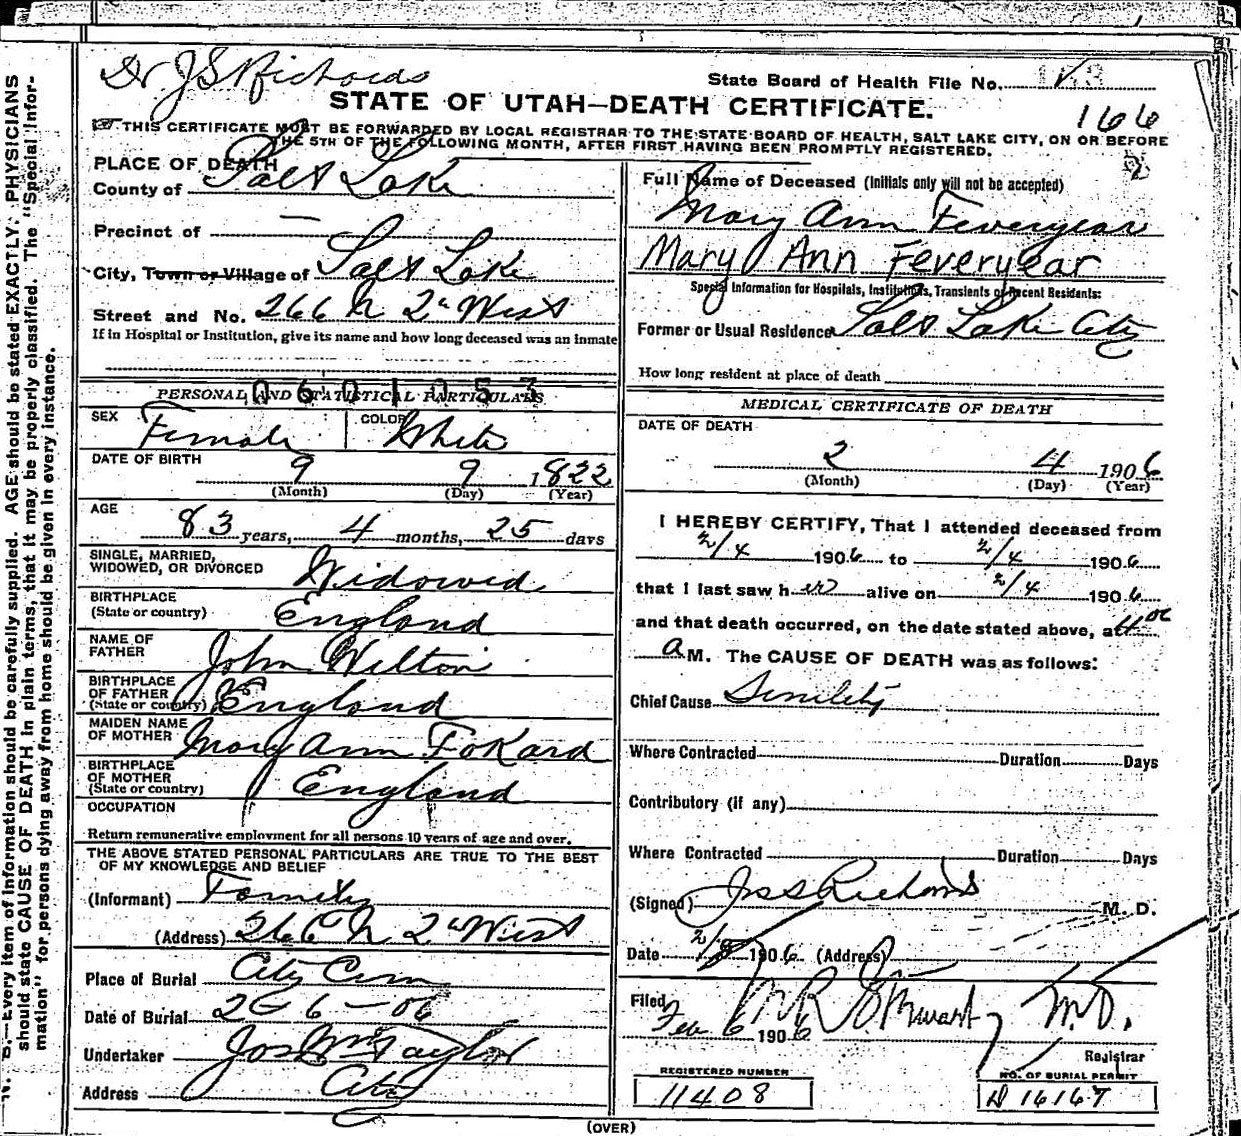 Dr J S Richards
State Board of Health File No.
STATE OF UTAH—DEATH CERTIFICATE.
166
THIS CERTIFICATE MUST BE FORWARDED BY LOCAL REGISTRAR TO THE STATE BOARD OF HEALTH, SALT LAKE CITY, ON OR BEFORE
THE 5TH OF THE FOLLOWING MONTH, AFTER FIRST HAVING BEEN PROMPTLY REGISTERED.
N. B.—Every item of information should be carefully supplied. AGE should be stated EXACTLY. PHYSICIANS
should state CAUSE OF DEATH in plain terms, that it may be properly classified. The "Special Infor-
mation" for persons dying away from home should be given in every instance.
PLACE OF DEATH
County of Salt Lake
Precinct of —
City, Town or Village of Salt Lake
Street and No. 266 N 2nd West
If in Hospital or Institution, give its name and how long deceased was an inmate
0601053
PERSONAL AND STATISTICAL PARTICULARS
SEX Female COLOR White
DATE OF BIRTH 9 9 1822
(Month) (Day) (Year)
AGE
83 years, 4 months, 25 days
SINGLE, MARRIED,
WIDOWED, OR DIVORCED Widowed
BIRTHPLACE
(State or country) England
NAME OF
FATHER John Wilton
BIRTHPLACE
OF FATHER
(State or country) England
MAIDEN NAME
OF MOTHER Mary Ann Fokard
BIRTHPLACE
OF MOTHER
(State or country) England
OCCUPATION
Return remunerative employment for all persons 10 years of age and over.
THE ABOVE STATED PERSONAL PARTICULARS ARE TRUE TO THE BEST
OF MY KNOWLEDGE AND BELIEF
(Informant) Family
(Address) 266 N 2nd West
Place of Burial City Cem
Date of Burial 2-6-06
Undertaker Jos Wm Taylor
Address City
Full Name of Deceased (Initials only will not be accepted)
Mary Ann Feveryear
Mary Ann Feveryear
Special Information for Hospitals, Institutions, Transients or Recent Residents:
Former or Usual Residence Salt Lake City
How long resident at place of death
MEDICAL CERTIFICATE OF DEATH
DATE OF DEATH
2 4 1906
(Month) (Day) (Year)
I HEREBY CERTIFY, That I attended deceased from
2/4 1906 to 2/4 1906
that I last saw her alive on 2/4 1906
and that death occurred, on the date stated above, at 4:00
a M. The CAUSE OF DEATH was as follows:
Chief Cause Senility
Where Contracted Duration Days
Contributory (if any)
Where Contracted Duration Days
(Signed) Jos S Richards M. D.
Date 1906 (Address)
Filed
Feb 6 1906 M.D.
Registrar
REGISTERED NUMBER
11408
NO. OF BURIAL PERMIT
D 16167
(OVER)